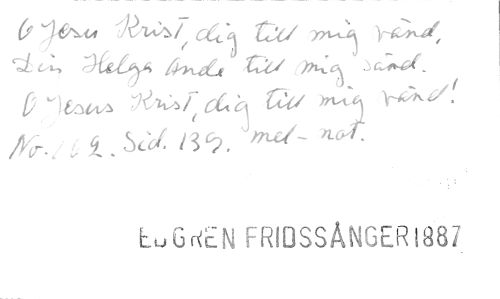 O Jesu Krist, dig till mig vänd,
Din Helga Ande till mig sänd.
O Jesus Krist, dig till mig vänd!
No. 162. Sid. 139. mel-not.
EDGREN FRIDSSÅNGER 1887